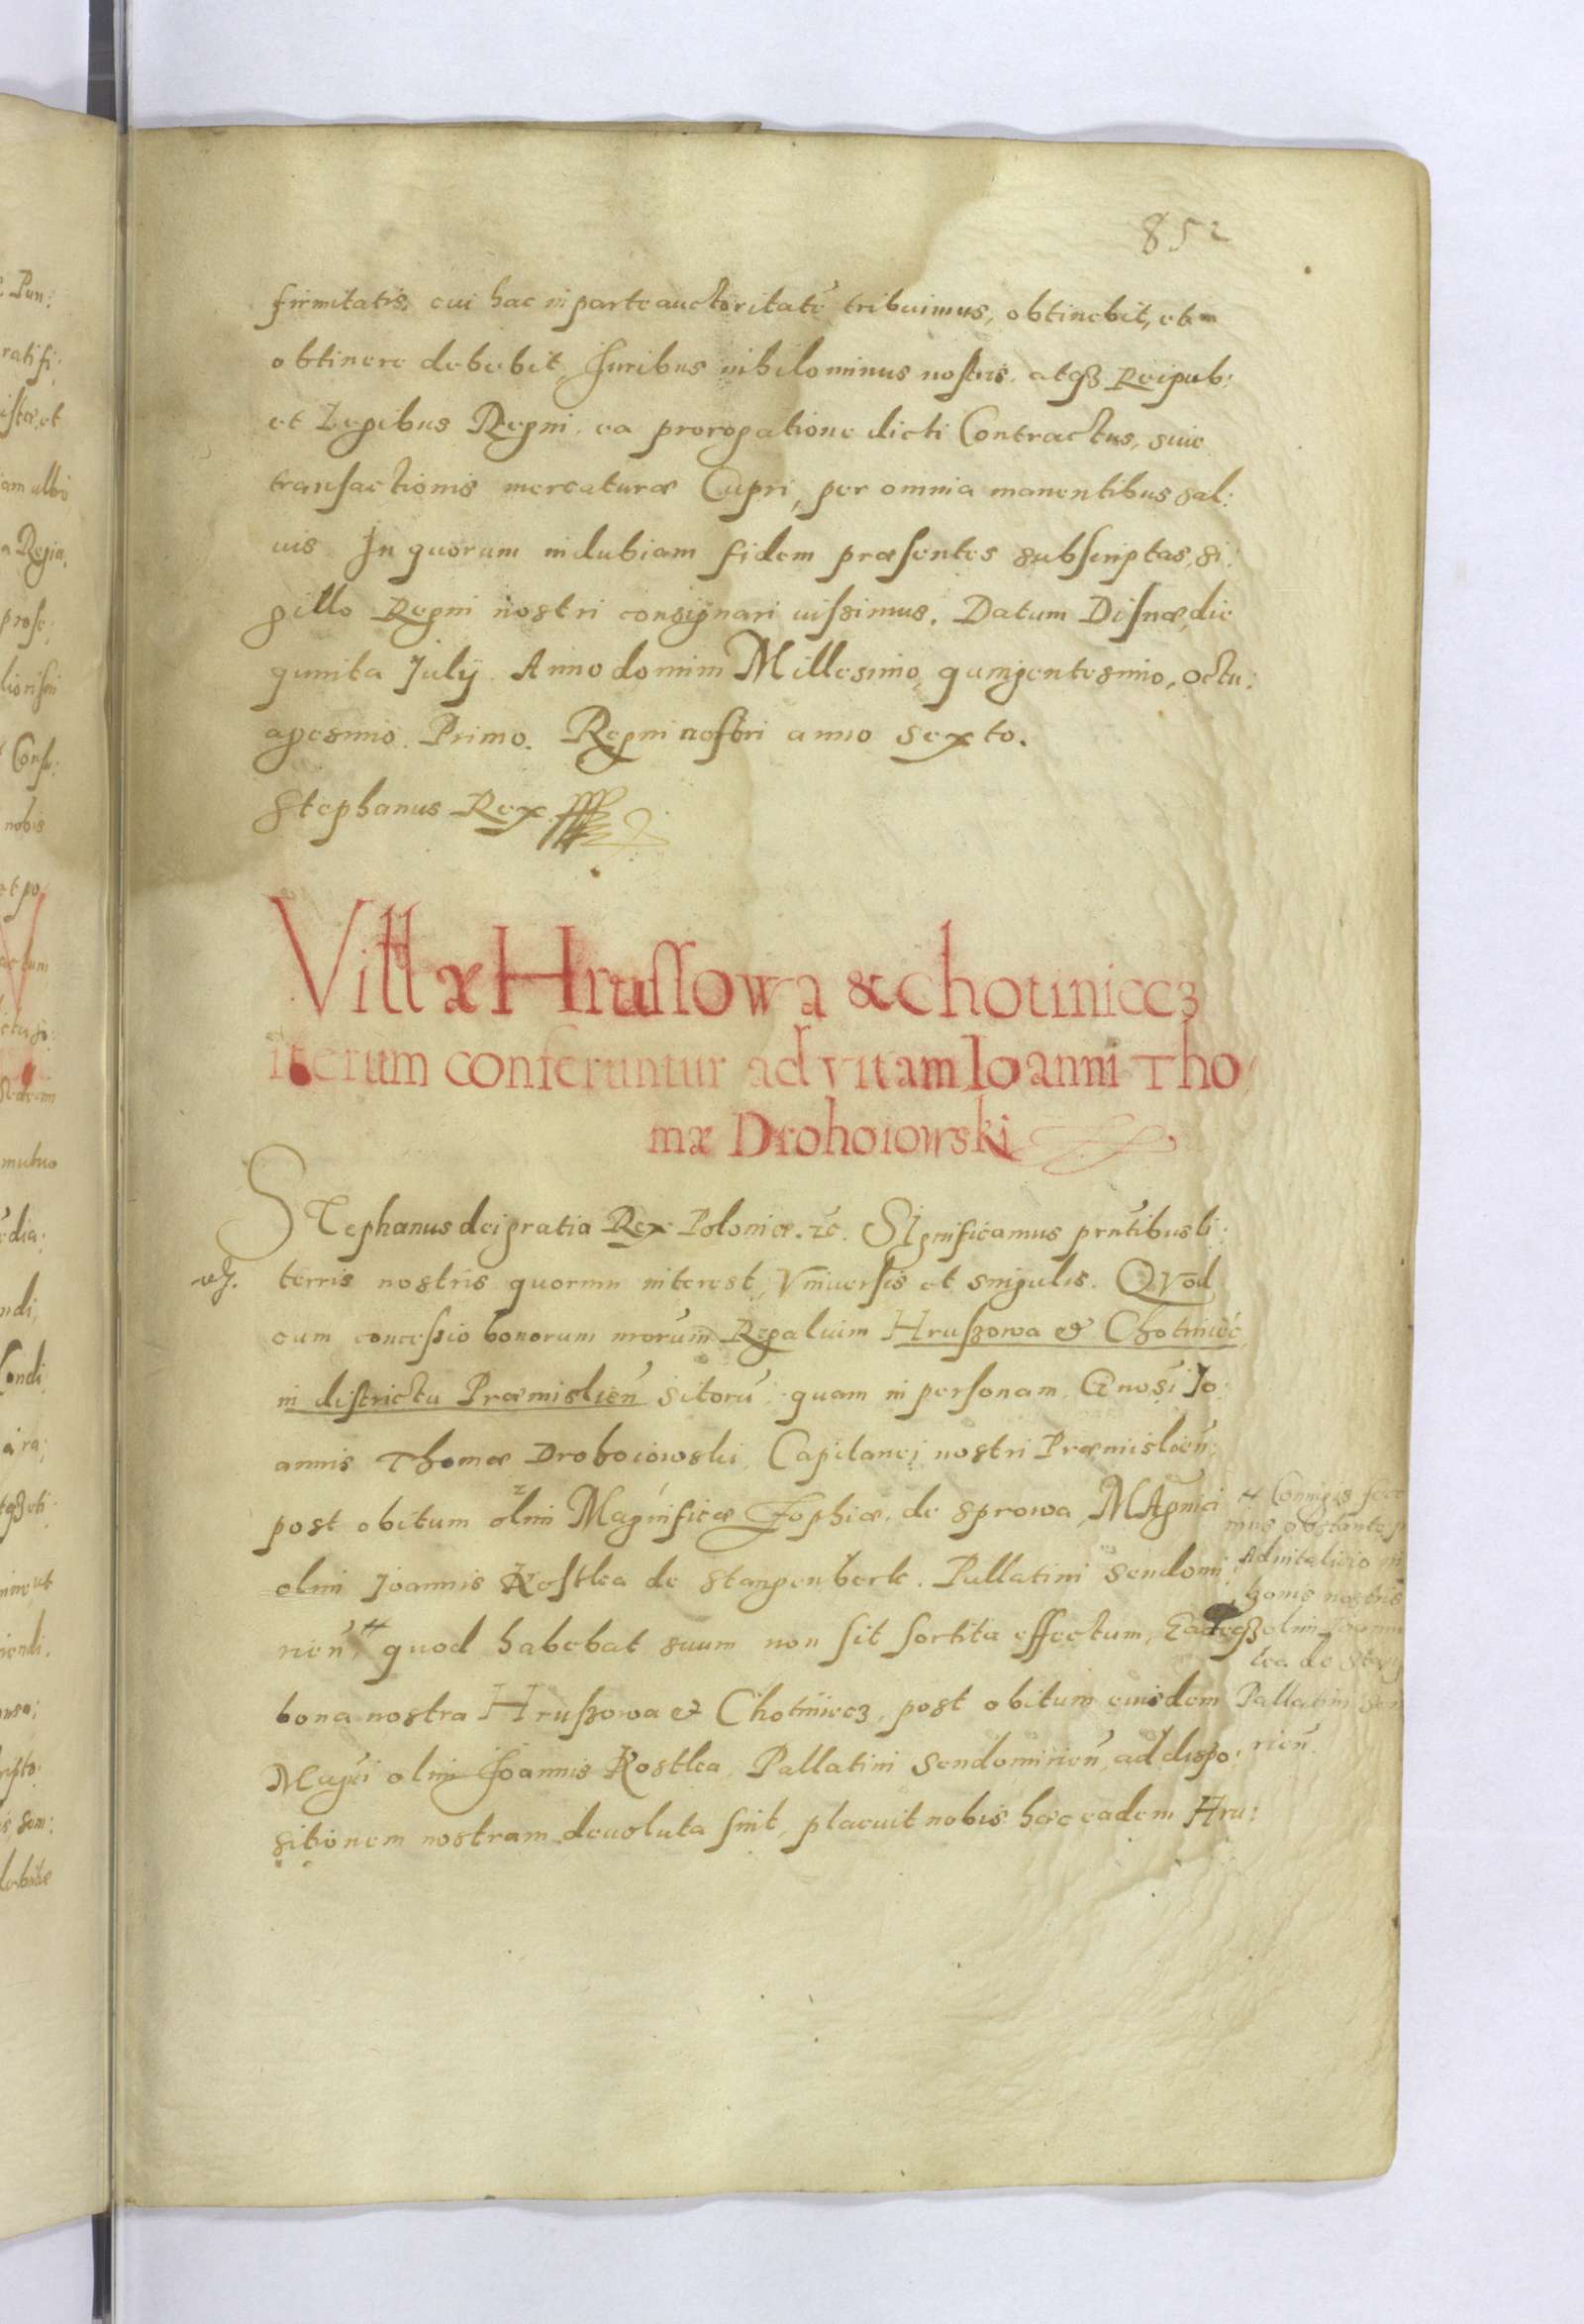 852
firmitatis, cui hac in parte auctoritatē tribuimus, obtinebit, et
obtinere debebit, Juribus nihilominus nostris atqꝫ Reipub:
et Legibus Regni ea prorogatione dicti Contractus, siue
transactionis mercaturæ Cupri, per omnia manentibus sal:
uis. In quorum indubiam fidem præsentes subscriptas, si:
gillo Regni nostri consignari iussimus. Datum Disnæ, die
quinta Julij. Anno domini Millesimo, quingentesimo, octu:
agesimo. Primo. Regni nostri anno sexto.
Stephanus Rex
Villæ Hrussowa & Chotiniecz
iterum conferuntur ad vitam Ioanni Tho
mæ Drohoiowski
Stephanus dei gratia Rex Poloniæ. &c. Significamus prñtibus li:
terris nostris quorum interest, Vniuersis et singulis. Qvod
cum concessio bonorum nrorum Regalium Hruszowa et Chotiniec
in districtu Præmislien̄ sitorū quam in personam Gnosi Jo:
annis Thomæ Drohoiowski, Capitanei nostri Præmislien̄,
post obitum olim Magnificæ Zophiæ de Sprowa, Magnici
olim Joannis Kostka de Stangenberk. Pallatini Sendomi:
rien̄, quod habebat suum non sit sortita effectum, Eadeqꝫ
bona nostra Hruszowa et Chotiniecz, post obitum eiusdem
Magci olim Joannis Kostka, Pallatini Sendomirien̄ ad dispo:
sitionem nostram deuoluta sint, placuit nobis hæc eadem Hru:
Coniugis
obstante
Aduitalicio
bonis nostris
olim Joannis
de
Pallatini
rien̄